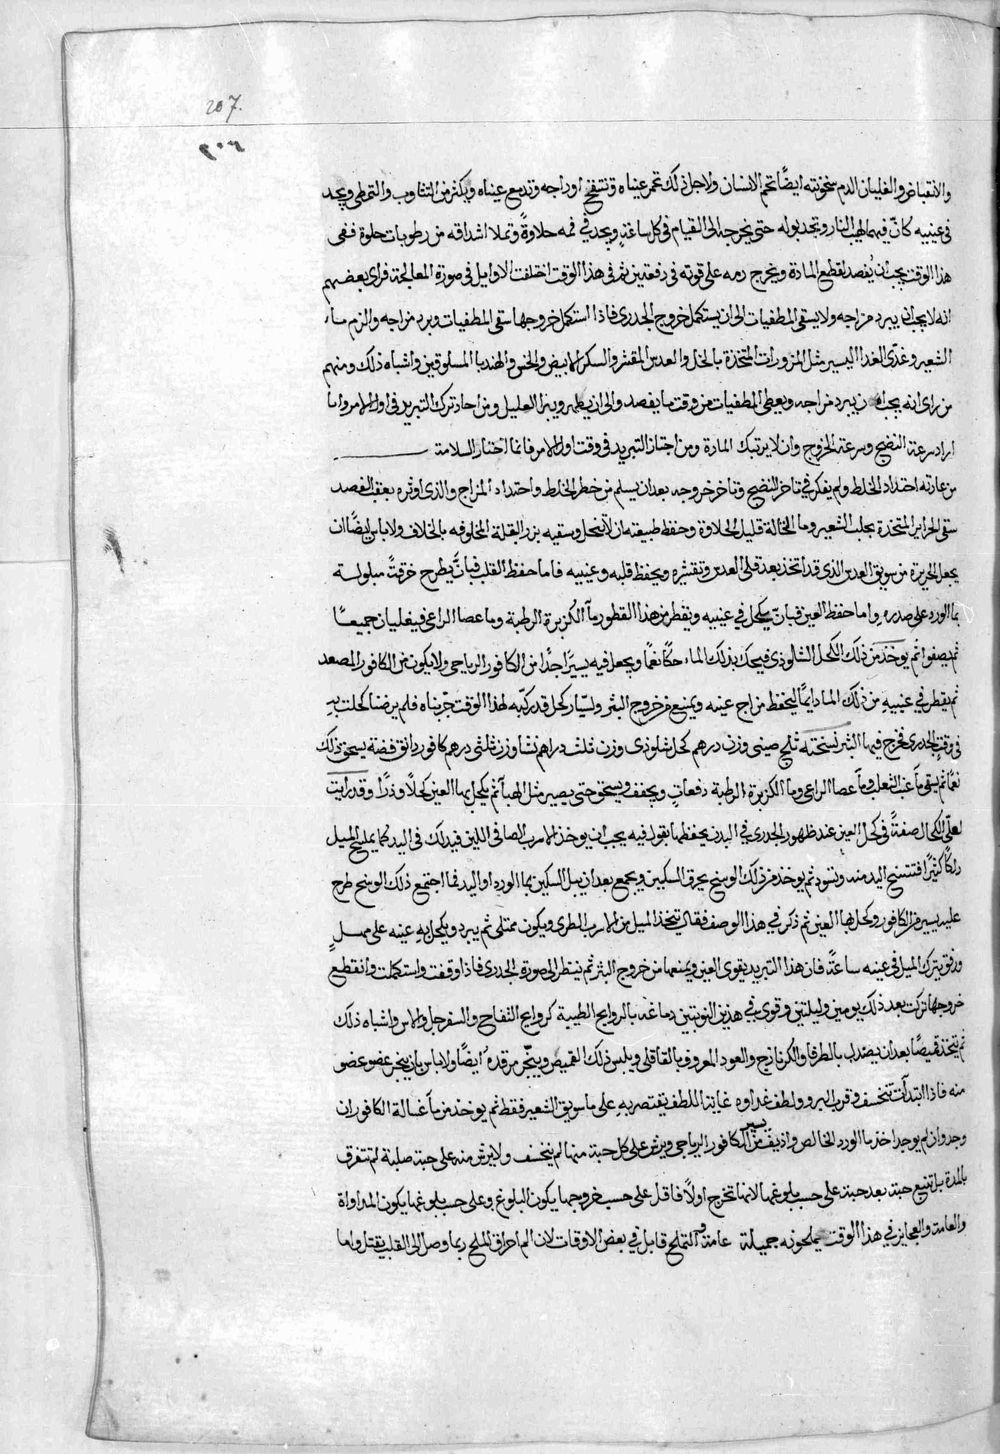 207.
٢٠٦
والانقباض والغليان الدم سخونته ايضًا تحم الانسان ولاجل ذلك تحمر عيناه وتنتفخ اوداجه وتدمع عيناه ويكثر من التثاوب والتمطى ويجد
فى عينيه كانّ فيهما لهب النار وتجد بوله حتى يخرجه الى القيام فى كل ساعة ويجد في فمه حلاوةً وتملا اشداقه من رطوبات حلوة ففى
هذا الوقت يجب ان يُفصد لقطع المادة ويخرج دمه على قوته فى دفعتين ثم فى هذا الوقت اختلفت الاوايل فى صورة المعالجة فراى بعضهم
انه لا يجب ان يبرد مزاجه ولا يسقى المطفيات الى ان يستكمل خروج الجدرى فاذا استكمل خروجها سقى المطفيات وبرد مزاجه والزم ماء
الشعير وغدّى الغدا اليسير مثل المزورات المتخذة بالخل والعدس المقشر والسكر الابيض والخس والهندبا المسلوقين واشباه ذلك ومنهم
من راى انه يجب ان يبرد مزاجه ويعطى المطفيات من وقت ما يفصد والى ان يطهر ويبرا العليل ومن اختار ترك التبريد فى اول الامر وانما
اراد سرعة النضج وسرعة الخروج وان لا يرتبك المادة ومن اجتاز التبريد فى وقت اول الامر فانما اختار السلامة
من عادته احتداد الخلط ولم يفكر فى تاخر النضج وتاخر خروجه بعد ان يسلم من خطر الخلط واحتداد المزاج والذى اوثره بعقب الفصد
سقى الحراير المتخذة بجلب الشعير وما النخالة قليل الحلاوة وحفظ طبيعته ان لا تنحل وسقيه بزر البقلة المخلوفه بالخلاف ولا باس ايضًا ان
يجعل الحريرة من سويق العدس الذى قد اتخذ بعد قلى العدس وتقشره ويحفظ قلبه وعينيه فاما حفظ القلب فبان يطرح خرقتً مبلولسة
بما الورد على صدره واما حفظ العين فبان يكحل في عينيه ويقطر من هذا القطور ما الكزبرة الرطبة وما عصا الراعى فيغليان جميعًا
ثم يصفوا ثم يوخذ من ذلك الكحل الشلوذى فيحك بذلك الماء حكًا نعمًا ويجعل فيه يسيرًا جدًا من الكافور الرياحى ولا يكون من الكافور المصعد
ثم يقطر في عينيه من ذلك الما دايمًا ليحفظ مزاج عينه ويمنع من خروج البثر ولسيّار كحل قد ركّبه لهذا الوقت جربناه فلم يرضنا كحلت بهِ
فى وقت الجدرى فخرج فيها البثر نسخته ثلج صينى وزن درهم كحل شلوذى وزن ثلث دراهم نشا وزن ثلثى درهم كافور دانق فضة يسحق ذلك
نعمًا ثم يسقى ما عنب الثعلب وما عصا الراعى وما الكزبرة الرطبة دفعات ويجفف ويسحق حتى يصير مثل الهبا ثم يكحل بها العين كحلًا وذرًا وقد رايت
لعلى الكحال صفةً فى كحل العين عند ظهور الجدرى في البدن يحفظها يقول فيه يجب ان يوخذ الاسرب الصافى اللين فيدلك فى اليد كما يمسح الميل
دلكًا كثيرًا فتتسخ اليد منه وتسود ثم يوخذ من ذلك الوسخ بحرق السكين ويجمع بعد ان يبل السكين بما الورد او اليد فما اجتمع ذلك الوسخ طرح
عليه يسير من الكافور وكحل بها العين ثم ذكر في هذا الوصف فقال يتخذ الميل من الاسرب الطرى ويكون ممتلى ثم يبرد ويكحل به عينه على مهلٍ
ورفق يترك الميل فى عينه ساعةً فان هذا التبريد يقوى العين ويمنعها من خروج البثر ثم ينتظر الى صورة الجدرى فاذا وقفت واستكملت وانقطع
خروجها تركت بعد ذلك يومين وليلتين وقوى في هذين النوبتين دماغه بالروايح الطيبة كروايح التفاح والسفرجل والاس واشباه ذلك
ثم يتخذ قميصًا بعد ان يصندل بالطرفا والكرنازج والعود المعروف بالقاقلى ويلبس ذلك القميص ويبخّر مرقده ايضًا ولا باس بان يبخر عضو عضو
منه فاذا ابتدأت تنخسف وقرب البرو ولطف غداوه غاية اللطف يقتصر به على ما سويق الشعير فقط ثم يوخذ من ما غسالة الكافور ان
وجد وان لم يوجد اخذ ما الورد الخالص واذيف من يسير الكافور الرياحى ويرش على كل حبة منها لم ينخسف ولا يرش منه على حبة صلبة لم تتفرق
بالمدة بل تتبع حبة بعد حبة على حسب بلوغها لانها تخرج اولًا فاقل على حسب خروجها يكون البلوغ وعلى حسب بلوغها يكون المداواة
والعامة والعجايز في هذا الوقت يملحونه جميلة عامة والتملح قابل في بعض الاوقات لان الم احراق الملح ربما وصل الى القلب يقتل واما